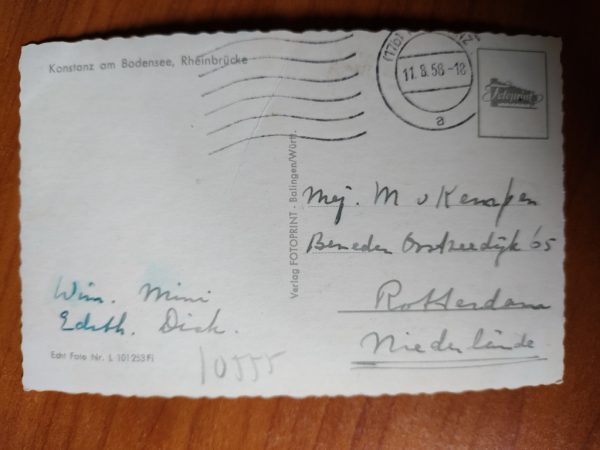 Konstanz am Bodensee, Rheinbrücke
11.8.58-18
a
Fotoprint
Verlag FOTOPRINT - Balingen/Württ.
Mej. M v Kempen
Beneden Oostzeedijk 65
Rotterdam
Niederlände
Wim. Mini
Edith. Dick.
Echt Foto Nr. L 101253Fi
10555